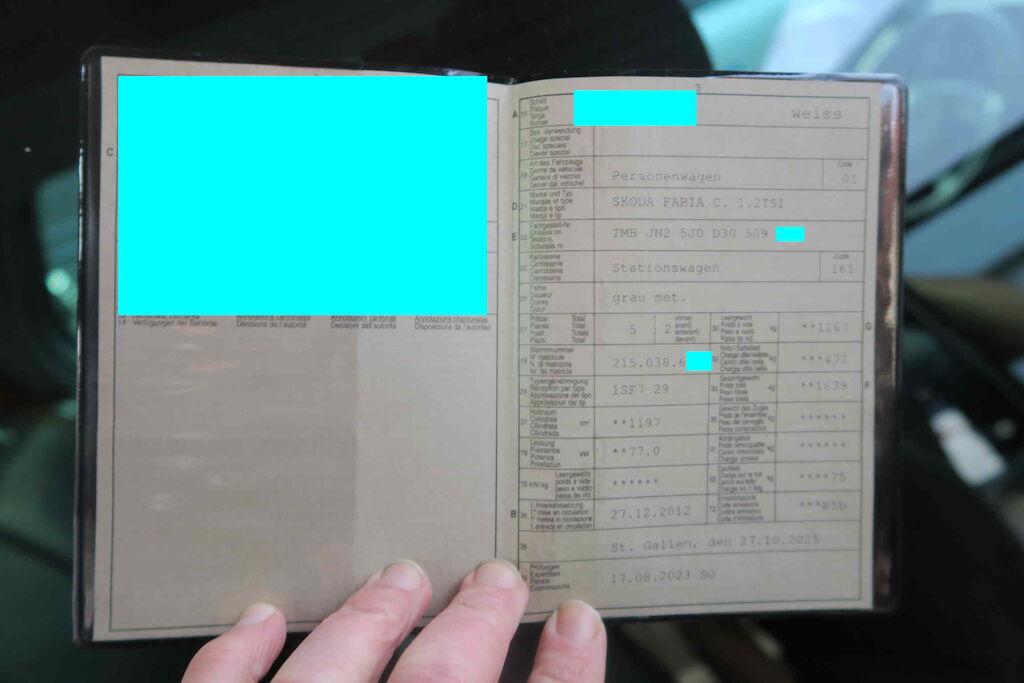 C
14 Verfügungen der Behörde
Annotazioni cantonali
Décisions de l'autorité
Decisioni dell'autorità
Disposiziuns da l'autoritad
3
A 15 Schild
Plaque
Targa
Numer
weiss
17 Bes. Verwendung
Usage spécial
Uso speciale
Diever spezial
19 Art des Fahrzeugs
Genre de véhicule
Genere di veicolo
Gener dal vehichel
Personenwagen
Code
01
D 21 Marke und Typ
Marque et type
Marca e tipo
Marca e tip
SKODA FABIA C. 1.2TSI
E 23 Fahrgestell-Nr.
Châssis no.
Telaio n.
Schassis nr.
TMB JN2 5J0 D30 509
25 Karosserie
Carrosserie
Carrozzeria
Carossaria
Stationswagen
Code
161
26 Farbe
Couleur
Colore
Colur
grau met.
27 Plätze: Total
Places: Total
Posti: Totale
Plazs: Total
5
2
vorne)
avant)
anteriori)
davant)
30 Leergewicht
Poids à vide
Peso a vuoto
Paisa da vid
kg
**1167
G
18 Stammnummer
N° matricule
N. di matricola
Nr. da matricla
215.038.6
32 Nutz-/Sattellast
kg
***472
24 Typengenehmigung
Réception par type
Approvazione del tipo
Approvaziun dal tip
1SF7 29
33 Gesamtgewicht
Poids total
Peso totale
Paisa totala
kg
**1639
F
37 Hubraum
Cylindrée
Cilindrata
Cilindrada
cm³
**1197
35 Gewicht des Zuges
Poids de l'ensemble
kg
******
76 Leistung
Puissance
Potenza
Prestaziun
kW
**77.0
31 Anhängelast
kg
******
78 kW/kg
Leergewicht
poids à vide
peso a vuoto
paisa da vid
******
55 Dachlast
kg
****75
B 36 1. Inverkehrsetzung
1re mise en circulation
1a messa in circolazione
1. entrada en circulaziun
27.12.2012
72 Emissionscode
Code émissions
***B5b
38
St. Gallen, den 27.10.2025
39 Prüfungen
Expertises
Perizie
Examinaziuns
17.08.2023 SG